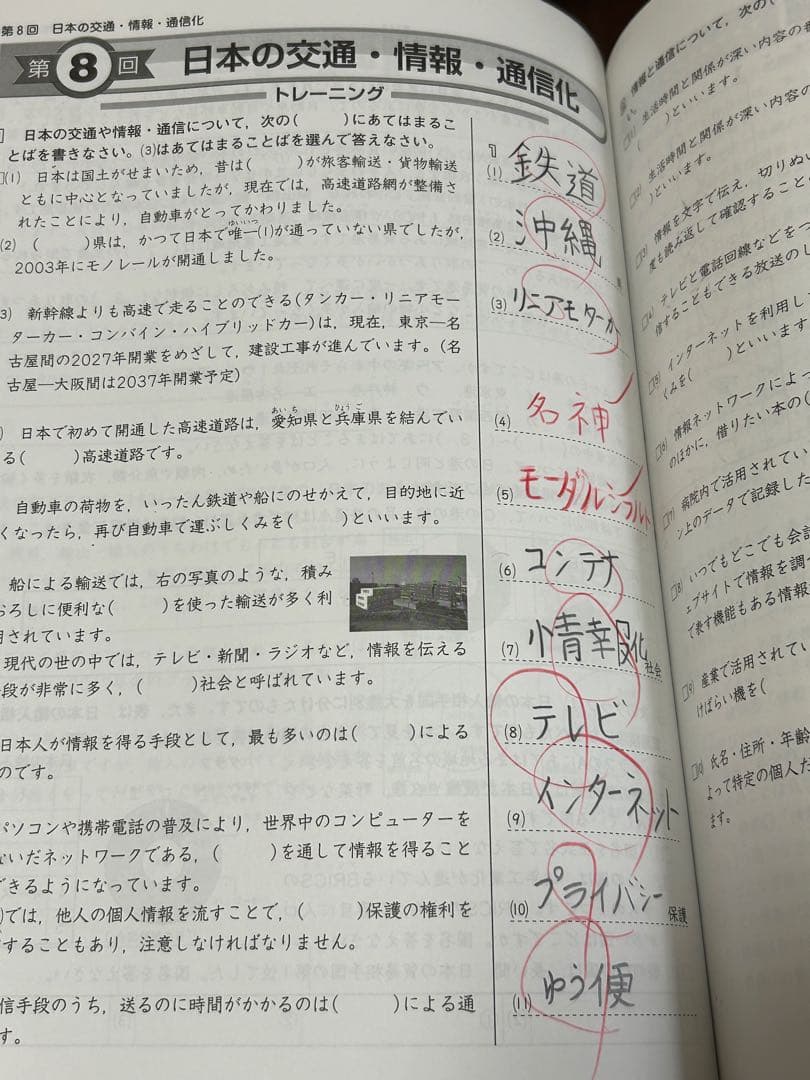 第8回 日本の交通・情報・通信化
第8回 日本の交通・情報・通信化
トレーニング
日本の交通や情報・通信について，次の( )にあてはまるこ
とばを書きなさい。(3)はあてはまることばを選んで答えなさい。
(1) 日本は国土がせまいため，昔は( )が旅客輸送・貨物輸送
ともに中心となっていましたが，現在では，高速道路網が整備さ
れたことにより，自動車がとってかわりました。
(2) ( )県は，かつて日本で唯一(1)が通っていない県でしたが，
2003年にモノレールが開通しました。
3) 新幹線よりも高速で走ることのできる(タンカー・リニアモー
ターカー・コンバイン・ハイブリッドカー)は，現在，東京―名
古屋間の2027年開業をめざして，建設工事が進んでいます。(名
古屋―大阪間は2037年開業予定)
日本で初めて開通した高速道路は，愛知県と兵庫県を結んでい
る( )高速道路です。
自動車の荷物を，いったん鉄道や船にのせかえて，目的地に近
くなったら，再び自動車で運ぶしくみを( )といいます。
船による輸送では，右の写真のような，積み
おろしに便利な( )を使った輸送が多く利
用されています。
現代の世の中では，テレビ・新聞・ラジオなど，情報を伝える
手段が非常に多く，( )社会と呼ばれています。
日本人が情報を得る手段として，最も多いのは( )による
のです。
パソコンや携帯電話の普及により，世界中のコンピューターを
ないだネットワークである，( )を通して情報を得ること
できるようになっています。
)では，他人の個人情報を流すことで，( )保護の権利を
することもあり，注意しなければなりません。
信手段のうち，送るのに時間がかかるのは( )による通
す。
1
(1) 鉄道
(2) 沖縄 県
(3) リニアモーターカー
(4) 名神
(5) モーダルシフト
(6) コンテナ
(7) 化 社会
(8) テレビ
(9) インターネット
(10) プライバシー 保護
(11) ゆう便
情報と通信について，次の
生活時間と関係が深い内容の番
( )といいます。
生活時間と関係が深い内容の
)といいます。
情報を文字で伝え，切りぬい
度も読み返して確認すること
テレビと電話回線などをつ
信することもできる放送のし
インターネットを利用して
くみを( )といいます
情報ネットワークによっ
のほかに，借りたい本の(
病院内で活用されてい
ン上のデータで記録した
いつでもどこでも会話
ェブサイトで情報を調べ
で表す機能もある情報
産業で活用されてい
けばらい機を(
氏名・住所・年齢
よって特定の個人だ
ます。